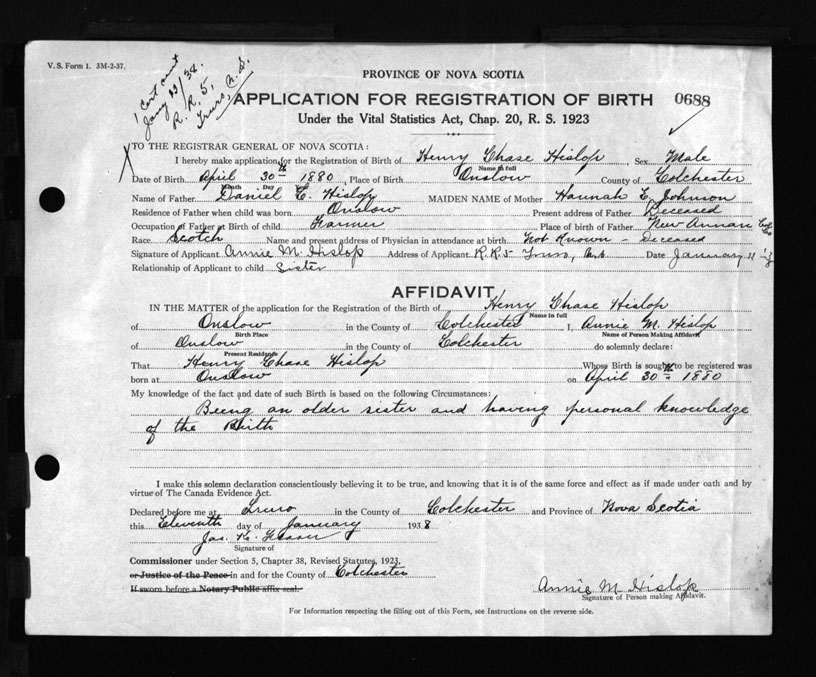 V. S. Form 1. 3M-2-37.
1 Cert sent
Jany 13/38.
R. R. 5,
Truro, N. S.
PROVINCE OF NOVA SCOTIA
APPLICATION FOR REGISTRATION OF BIRTH 0688
Under the Vital Statistics Act, Chap. 20, R. S. 1923
TO THE REGISTRAR GENERAL OF NOVA SCOTIA:
I hereby make application for the Registration of Birth of Henry Chase Hislop, Sex Male
Name in full
Date of Birth April 30th 1880, Place of Birth Onslow County of Colchester
Month Day
Name of Father Daniel C. Hislop MAIDEN NAME of Mother Hannah E. Johnson
Residence of Father when child was born Onslow Present address of Father Deceased
Occupation of Father at Birth of child Farmer Place of Birth of Father New Annan
Race Scotch Name and present address of Physician in attendance at birth Not Known - Deceased
Signature of Applicant Annie M. Hislop Address of Applicant R.R.5 Truro, N.S. Date January 11
Relationship of Applicant to child Sister
AFFIDAVIT
IN THE MATTER of the application for the Registration of the Birth of Henry Chase Hislop
Name in full
of Onslow in the County of Colchester I, Annie M. Hislop
Birth Place Name of Person Making Affidavit
of Onslow in the County of Colchester do solemnly declare:
Present Residence
That Henry Chase Hislop Whose Birth is sought to be registered was
born at Onslow on April 30th 1880
My knowledge of the fact and date of such Birth is based on the following Circumstances:
Being an older sister and having personal knowledge
of the Birth
I make this solemn declaration conscientiously believing it to be true, and knowing that it is of the same force and effect as if made under oath and by
virtue of The Canada Evidence Act.
Declared before me at Truro in the County of Colchester and Province of Nova Scotia
this Eleventh day of January 1938
Jas. K.
Signature of
Commissioner under Section 5, Chapter 38, Revised Statutes, 1923,
or Justice of the Peace in and for the County of Colchester
If sworn before a Notary Public affix seal.
Annie M Hislop
Signature of Person making Affidavit.
For Information respecting the filling out of this Form, see Instructions on the reverse side.